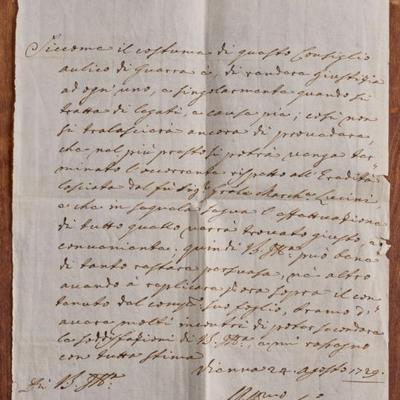 Siccome il costume di questo Consiglio
aulico di Guerra è, di rendere giustizia
ad ogn'uno, e singolarmente quando si
tratta di legati, e cause pie; così non
si tralascierà ancora di provedere,
che nel più presto si potrà venga ter-
minato l'occorrente rispetto all'Eredità
lasciata dal fù Sig.r Gnrale March.e Lucini
e che in seguela segua l'effettuazione
di tutto quello verrà trovato giusto, e
conveniente. quindi V. può bene
di tanto restare persuasa, né altro
avendo à replicare sopra il con-
tenuto del suo foglio, bramo d'
avere molti incontri di poter secondare
le soddisfazioni di V. e mi rassegno
con tutta stima
Vienna 24. Agosto 1729.
Di V.